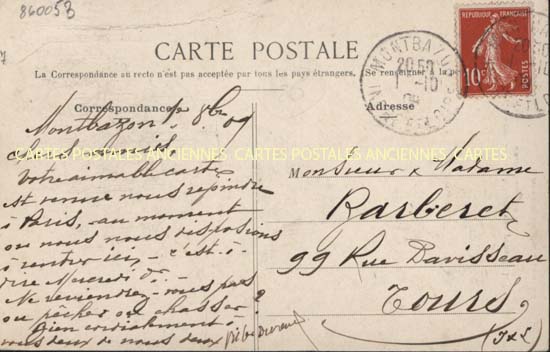 860053
CARTE POSTALE
La Correspondance au recto n'est pas acceptée par tous les pays étrangers. Se renseigner à la
RÉPUBLIQUE FRANÇAISE
10
MONTBAZON
20 50
1 -10
09
INDRE-ET-LOIRE
Correspondance
Adresse
Montbazon 1er 8bre 09
CARTES POSTALES ANCIENNES CARTES POSTALES ANCIENNES CARTES POSTALES ANCIENNES
Votre aimable carte
est venue nous rejoindre
à Paris, au moment
où nous nous disposions
à rentrer ici, c'est-à-
dire Mercredi
Ne reviendrez-vous pas
ou pêcher ou chasser ?
Bien cordialement
vous deux de nous deux
Monsieur & Madame
Barberet
99 Rue Davisseau
Tours
(I & L)